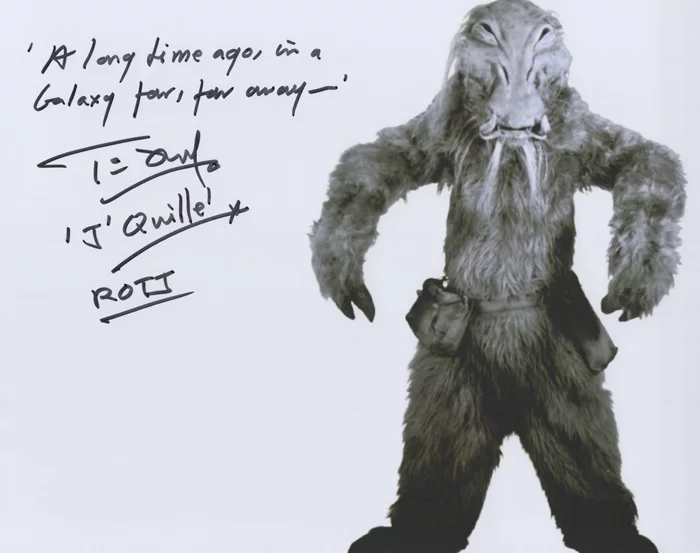 'A long time ago, in a
Galaxy far, far away—'
'J' Quille'
ROTJ